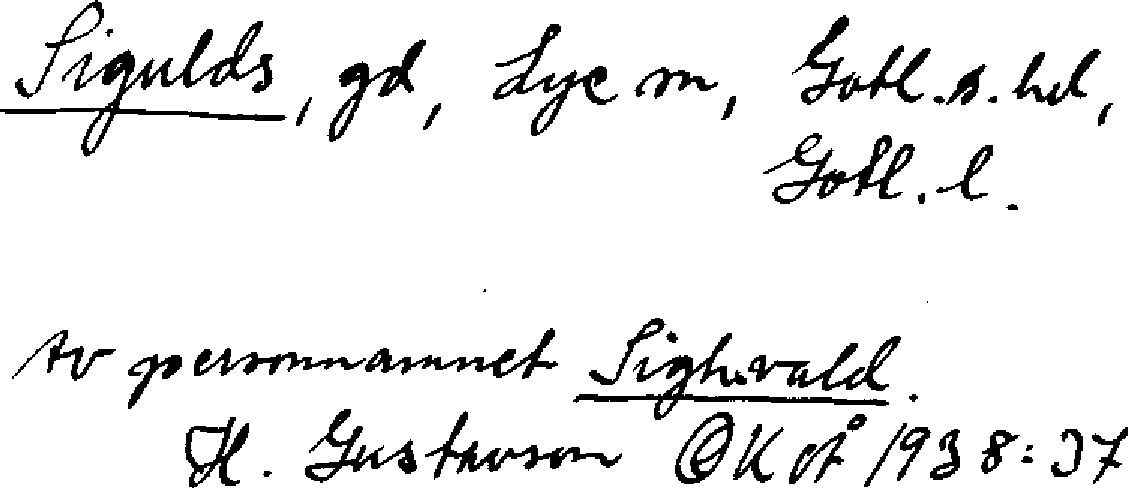 Sigulds, gd, Lye sn, Gotl. s. hd,
Gotl. l.
Av personnamnet Sighvald.
H. Gustavson OKoÅ 1938:37